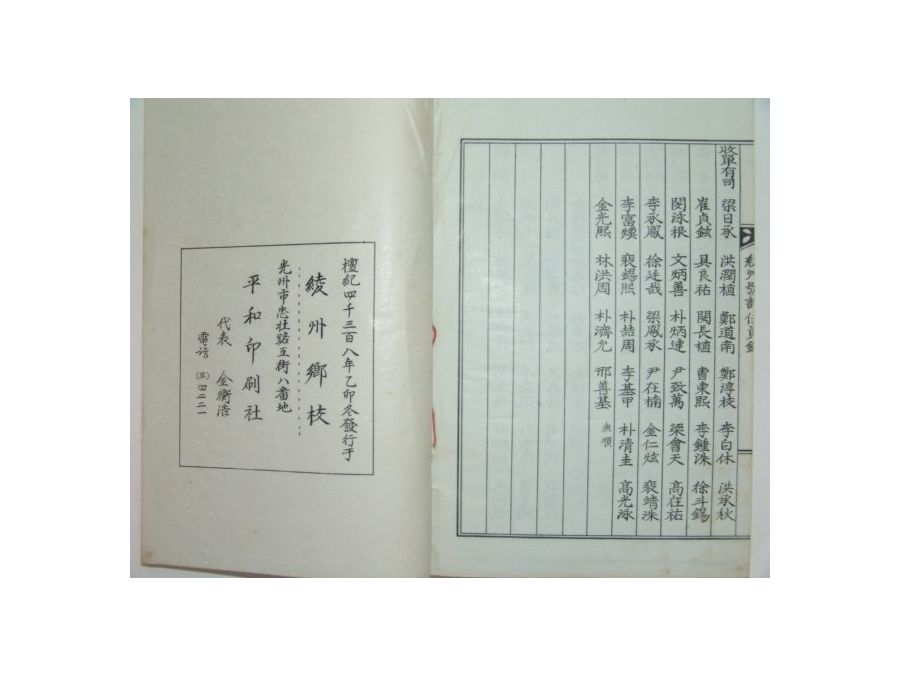 收單有司 梁日承 洪潤植 鄭道南 鄭淳枝 李白休 洪承秋
崔貞鉉 具良祐 閔長植 曺東熙 李鍾洙 徐斗錫
閔泳根 文炳善 朴炳達 尹致萬 梁會天 高在祐
李承鳳 徐廷哉 梁鳳承 尹在楠 金仁炫 裵靖洙
李富燦 裵錫熙 朴喆周 李基甲 朴清圭 高光泳
金光熙 林洪周 朴濟允 邢善基 無順
檀紀四千三百八年乙卯冬發行于
綾州鄉校
光州市忠壯路五街八番地
平和印刷社
代表 金衡浩
電話 (三)四二二一